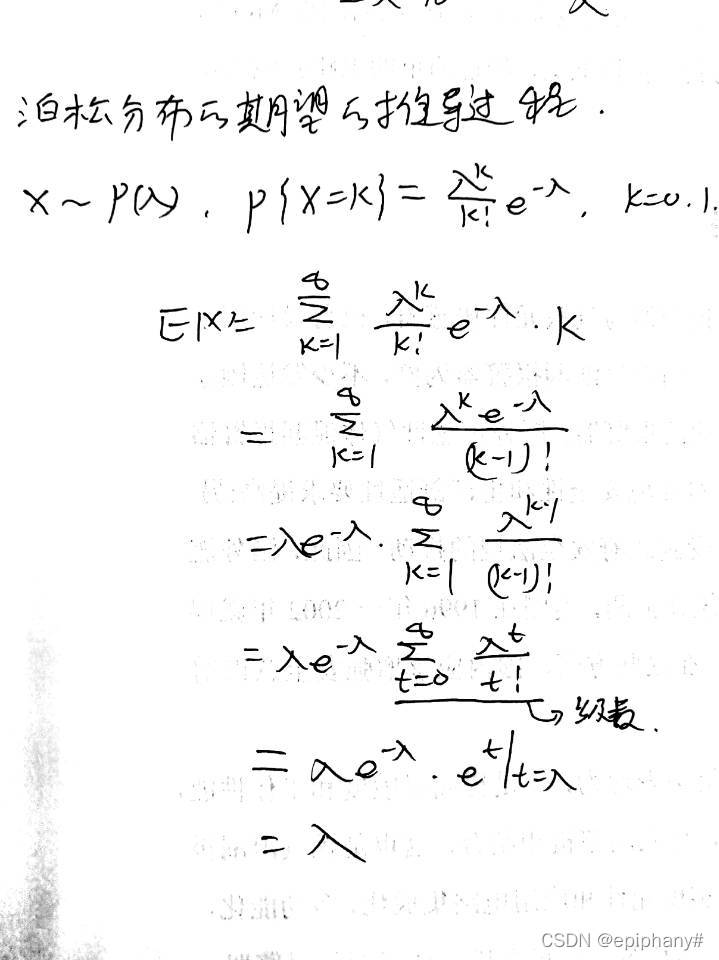 泊松分布的期望的推导过程.
X~P(λ). P{X=K}=λ^K/K! e^-λ. K=0.1.
EX= ∞∑K=1 λ^K/K! e^-λ·K
= ∞∑K=1 λ^K e^-λ/(K-1)!
=λe^-λ·∞∑K=1 λ^K-1/(K-1)!
=λe^-λ ∞∑t=0 λ^t/t!
→级数.
=λe^-λ·e^t|t=λ
=λ
CSDN @epiphany#